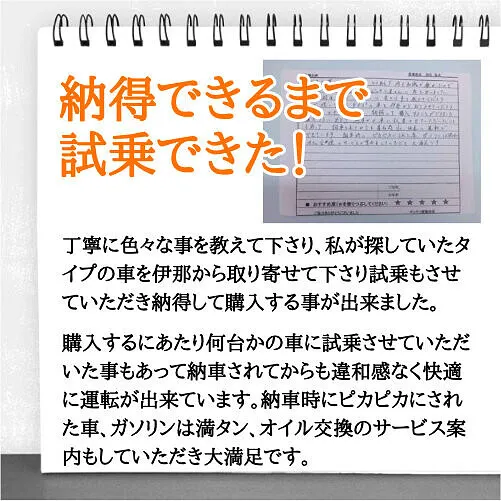 納得できるまで
試乗できた!
おすすめ度(☆を塗りつぶしてください) ★★★★★
丁寧に色々な事を教えて下さり、私が探していたタ
イプの車を伊那から取り寄せて下さり試乗もさせ
ていただき納得して購入する事が出来ました。
購入するにあたり何台かの車に試乗させていただ
いた事もあって納車されてからも違和感なく快適
に運転が出来ています。納車時にピカピカにされ
た車、ガソリンは満タン、オイル交換のサービス案
内もしていただき大満足です。